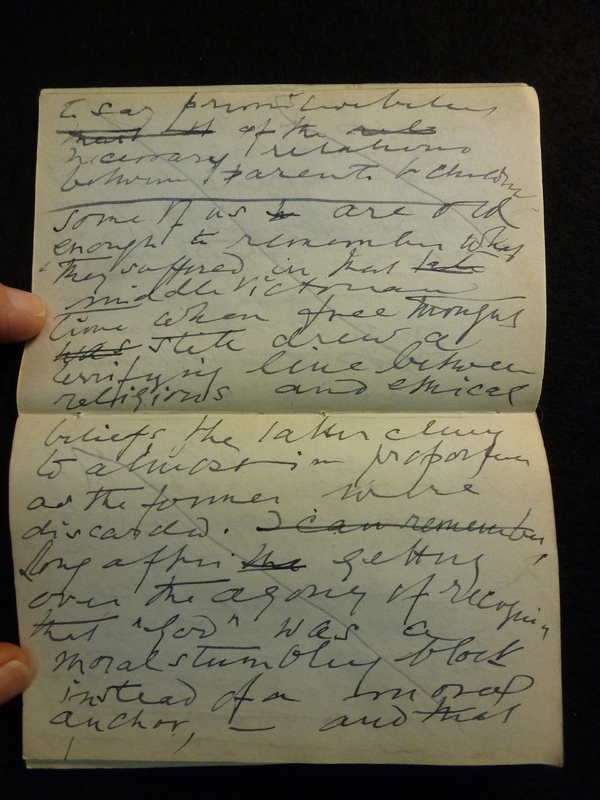 to say
of the
necessary relations
between parents & children
some of us are old
enough to remember what
they suffered in that
middle Victorian
time when free thought
drew a
terrifying line between
religious and ethical
beliefs the latter clung
to almost in proportion
as the former were
discarded. I can remember,
long after the getting
over the agony of
that "God" was a
moral stumbling block
instead of a moral
anchor, — and that